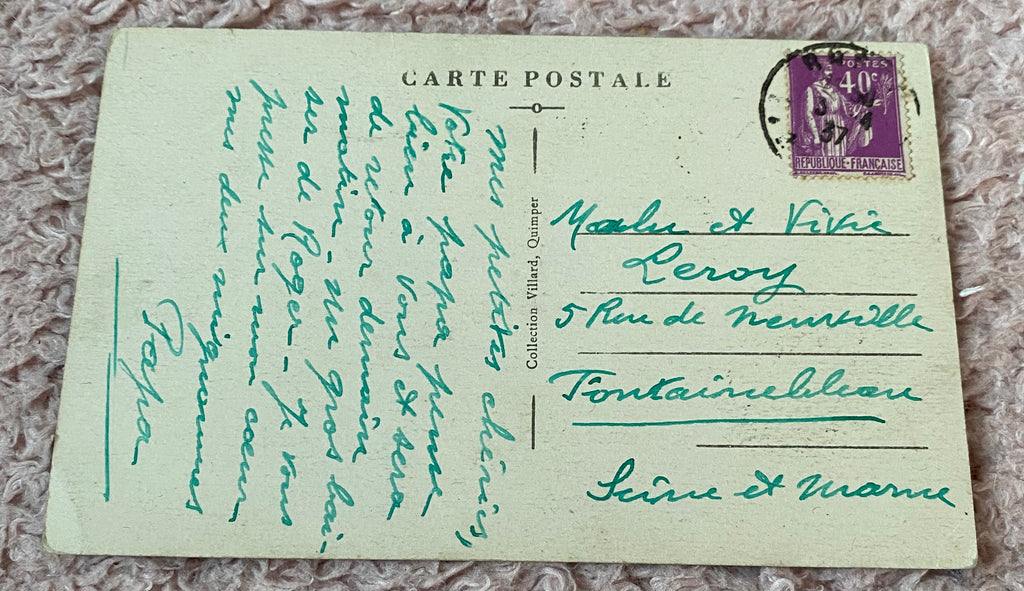 CARTE POSTALE
POSTES
40c
37
RÉPUBLIQUE-FRANÇAISE
Mes petites chéries,
Votre papa pense
bien à vous et sera
de retour demain
matin. Un gros bai-
ser de Roger. Je vous
presse sur mon cœur
mes deux mignonnes
Papa
Collection Villard, Quimper
et Vivie
Leroy
5 Rue de
Fontainebleau
Seine et Marne